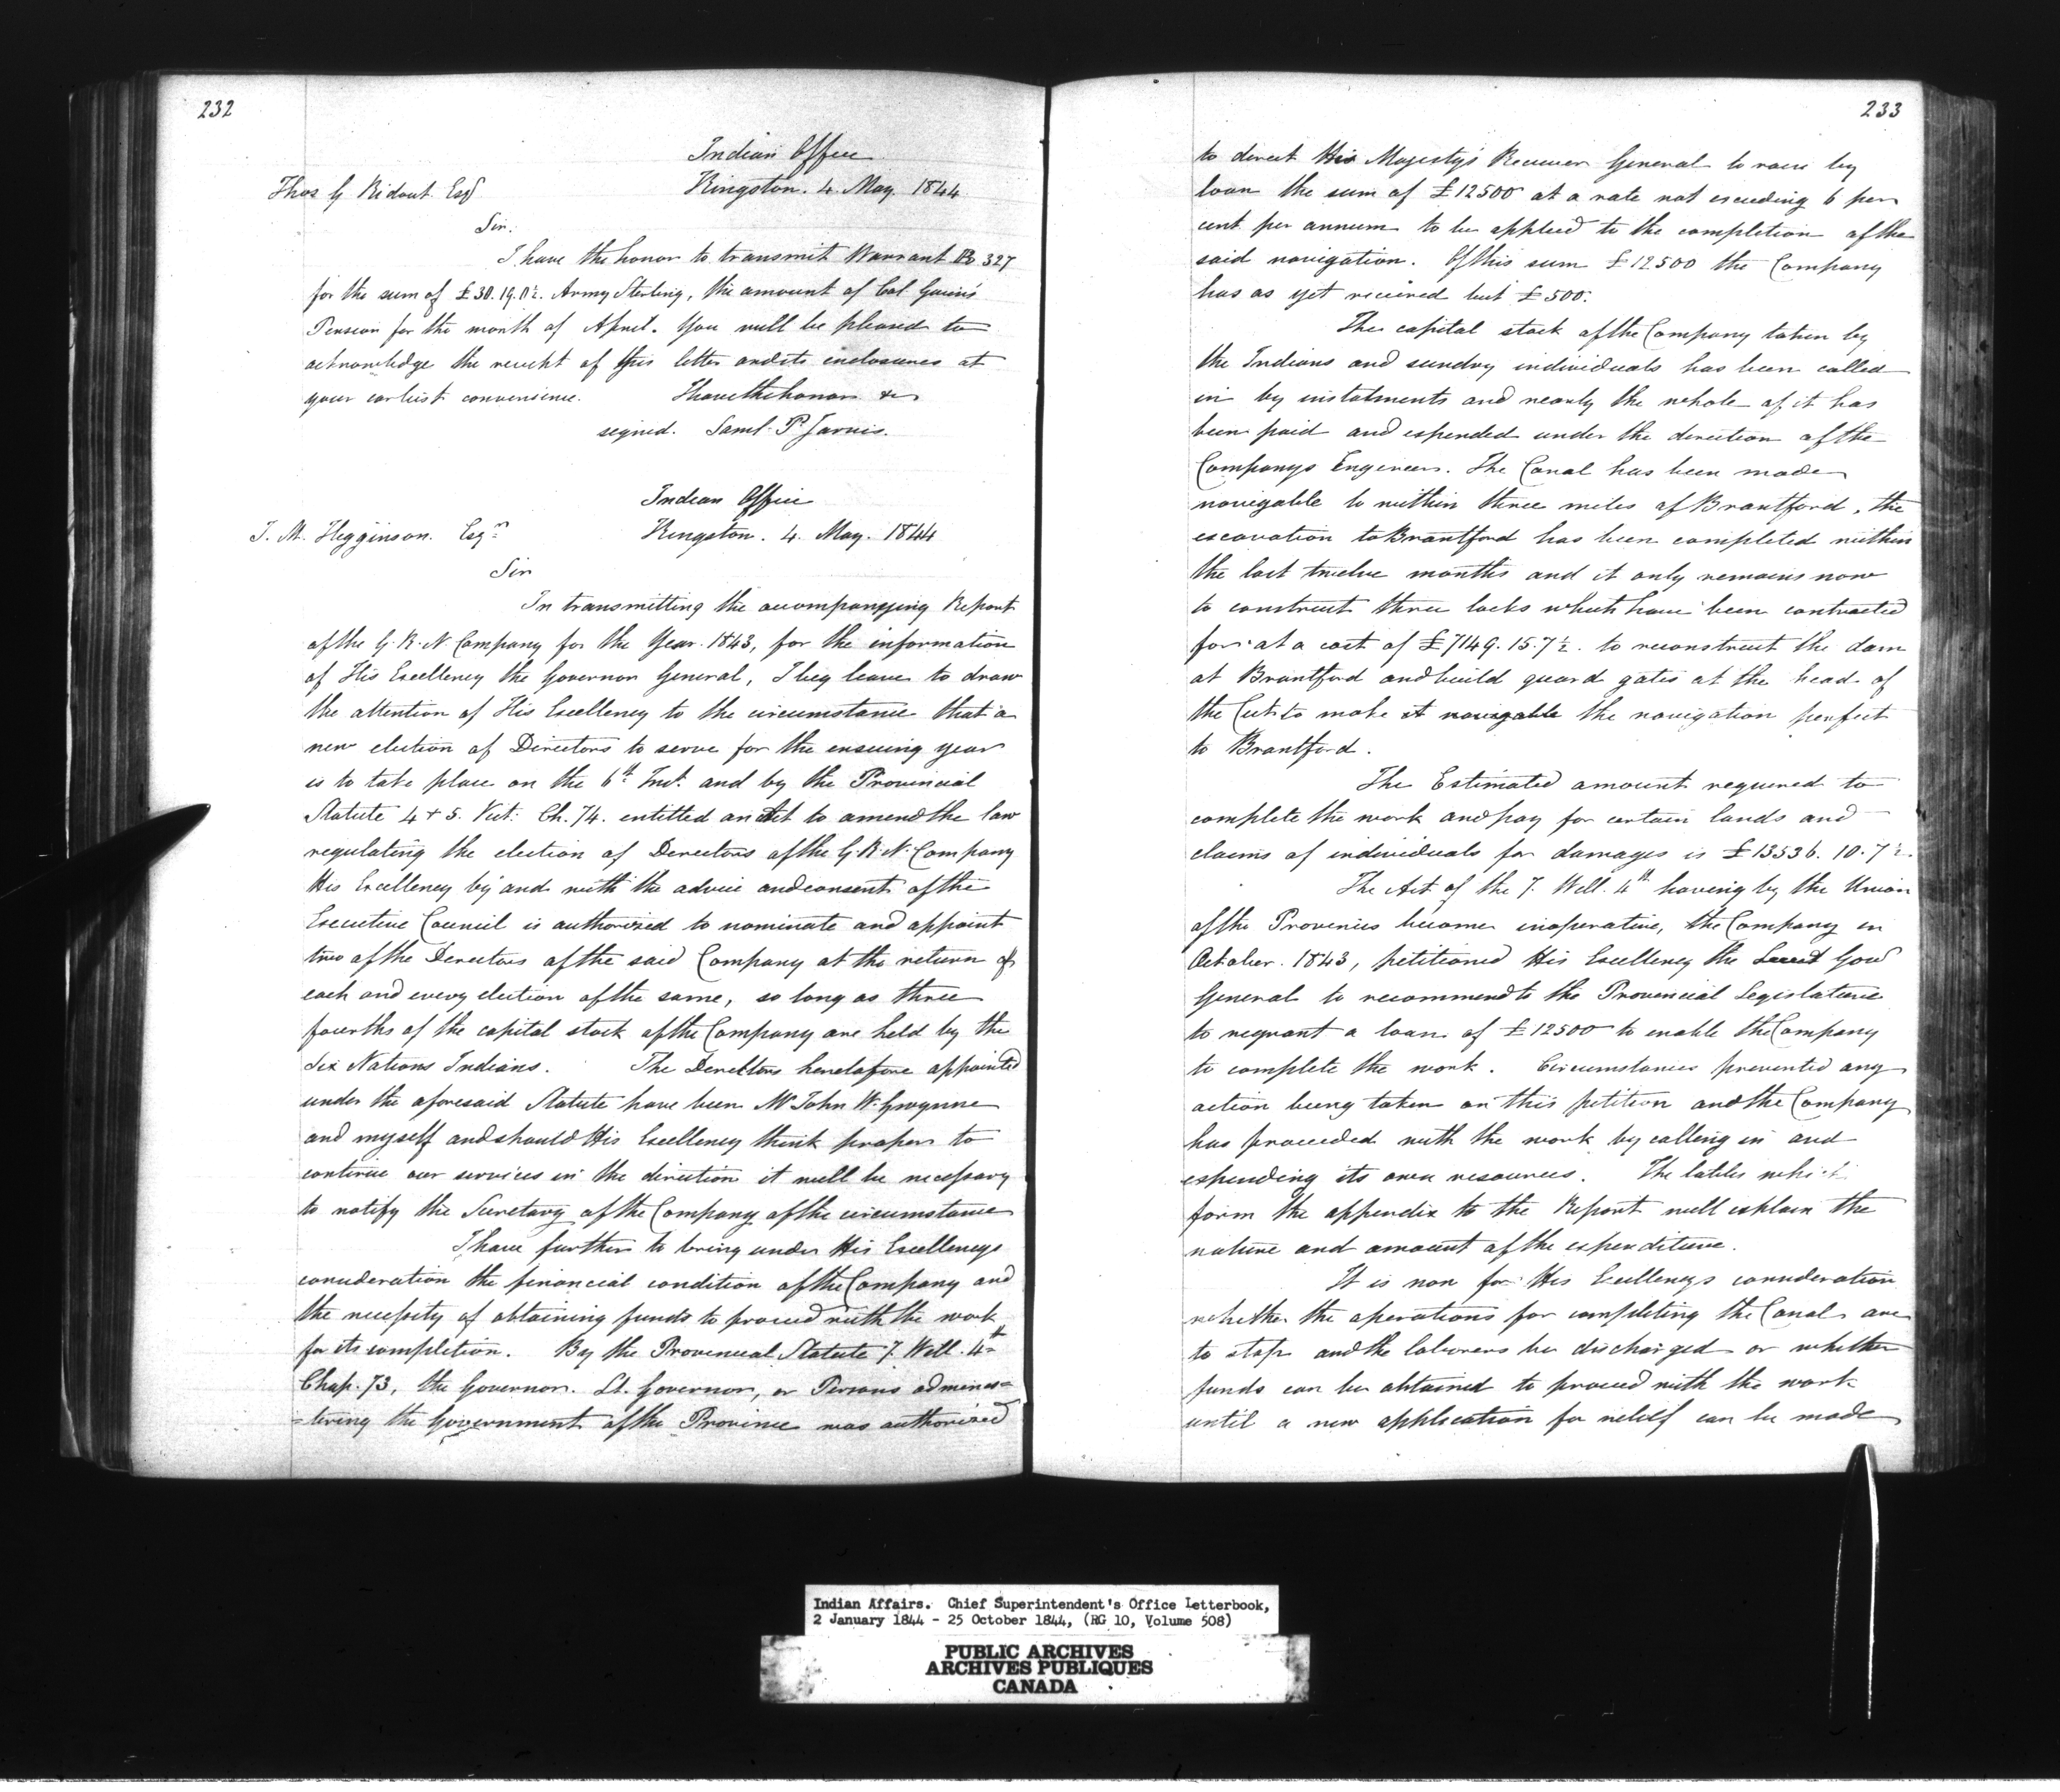 232
Indian Office
Kingston. 4. May. 1844
Thos G Ridout Esqr
Sir.
I have the honor to transmit Warrant B 327
for the sum of £30.19.0½. Army Sterling, the amount of Col Givins
Pension for the month of April. You will be pleased to
acknowledge the receipt of this letter and its enclosures at
your earliest convenience. I have the honor &c
signed. Saml. P Jarvis.
Indian Office
J. M. Higginson. Esqre
Kingston. 4. May. 1844
Sir
In transmitting the accompanying Report
of the G. R. N. Company for the Year. 1843, for the information
of His Excellency the Governor General, I beg leave to draw
the attention of His Excellency to the circumstance that a
new election of Directors to serve for the ensuing year
is to take place on the 6th Inst. and by the Provincial
Statute 4 + 5. Vict: Ch. 74. entitled an Act to amend the law
regulating the election of Directors of the G. R. N. Company
His Excellency by and with the advice and consent of the
Executive Council is authorized to nominate and appoint
two of the Directors of the said Company at the return of
each and every election of the same, so long as three
fourths of the capital stock of the Company are held by the
Six Nations Indians. The Directors heretofore appointed
under the aforesaid Statute have been Mr John W. Gwynne
and myself and should His Excellency think proper to
continue our services in the direction it will be necessary
to notify the Secretary of the Company of the circumstance
I have further to bring under His Excellencys
consideration the financial condition of the Company and
the necessity of obtaining funds to proceed with the work
for its completion. By the Provincial Statute 7. Will. 4th
Chap. 73, the Governor. Lt. Governor, or Persons adminis=
=tering the Government of the Province was authorized
233
to direct His Majesty's Receiver General to raise by
loan the sum of £12500 at a rate not exceeding 6 per
cent per annum to be applied to the completion of the
said navigation. Of this sum £12500 the Company
has as yet received but £500.
The capital stock of the Company taken by
the Indians and sundry individuals has been called
in by instalments and nearly the whole of it has
been paid and expended under the direction of the
Companys Engineer. The Canal has been made
navigable to within three miles of Brantford, the
excavation to Brantford has been completed within
the last twelve months and it only remains now
to construct three locks which have been contracted
for at a cost of £7149. 15. 7½. to reconstruct the dam
at Brantford and build guard gates at the head of
the Cut to make it navigable the navigation perfect
to Brantford.
The Estimated amount required to
complete the work and pay for certain lands and
claims of individuals for damages is £13536. 10. 7½.
The Act of the 7. Will. 4th having by the Union
of the Provinces become inoperative, the Company in
October. 1843, petitioned His Excellency the Gov
General to recommend to the Provincial Legislature
to regrant a loan of £12500 to enable the Company
to complete the work. Circumstances prevented any
action being taken on this petition and the Company
has proceeded with the work by calling in and
expending its own resources. The tables which
form the appendix to the Report will explain the
nature and amount of the expenditure.
It is now for His Excellencys consideration
whether the operations for completing the Canal are
to stop and the laborers be discharged or whether
funds can be obtained to proceed with the work
until a new application for relief can be made
Indian Affairs. Chief Superintendent's Office Letterbook,
2 January 1844 - 25 October 1844, (RG 10, Volume 508)
PUBLIC ARCHIVES
ARCHIVES PUBLIQUES
CANADA